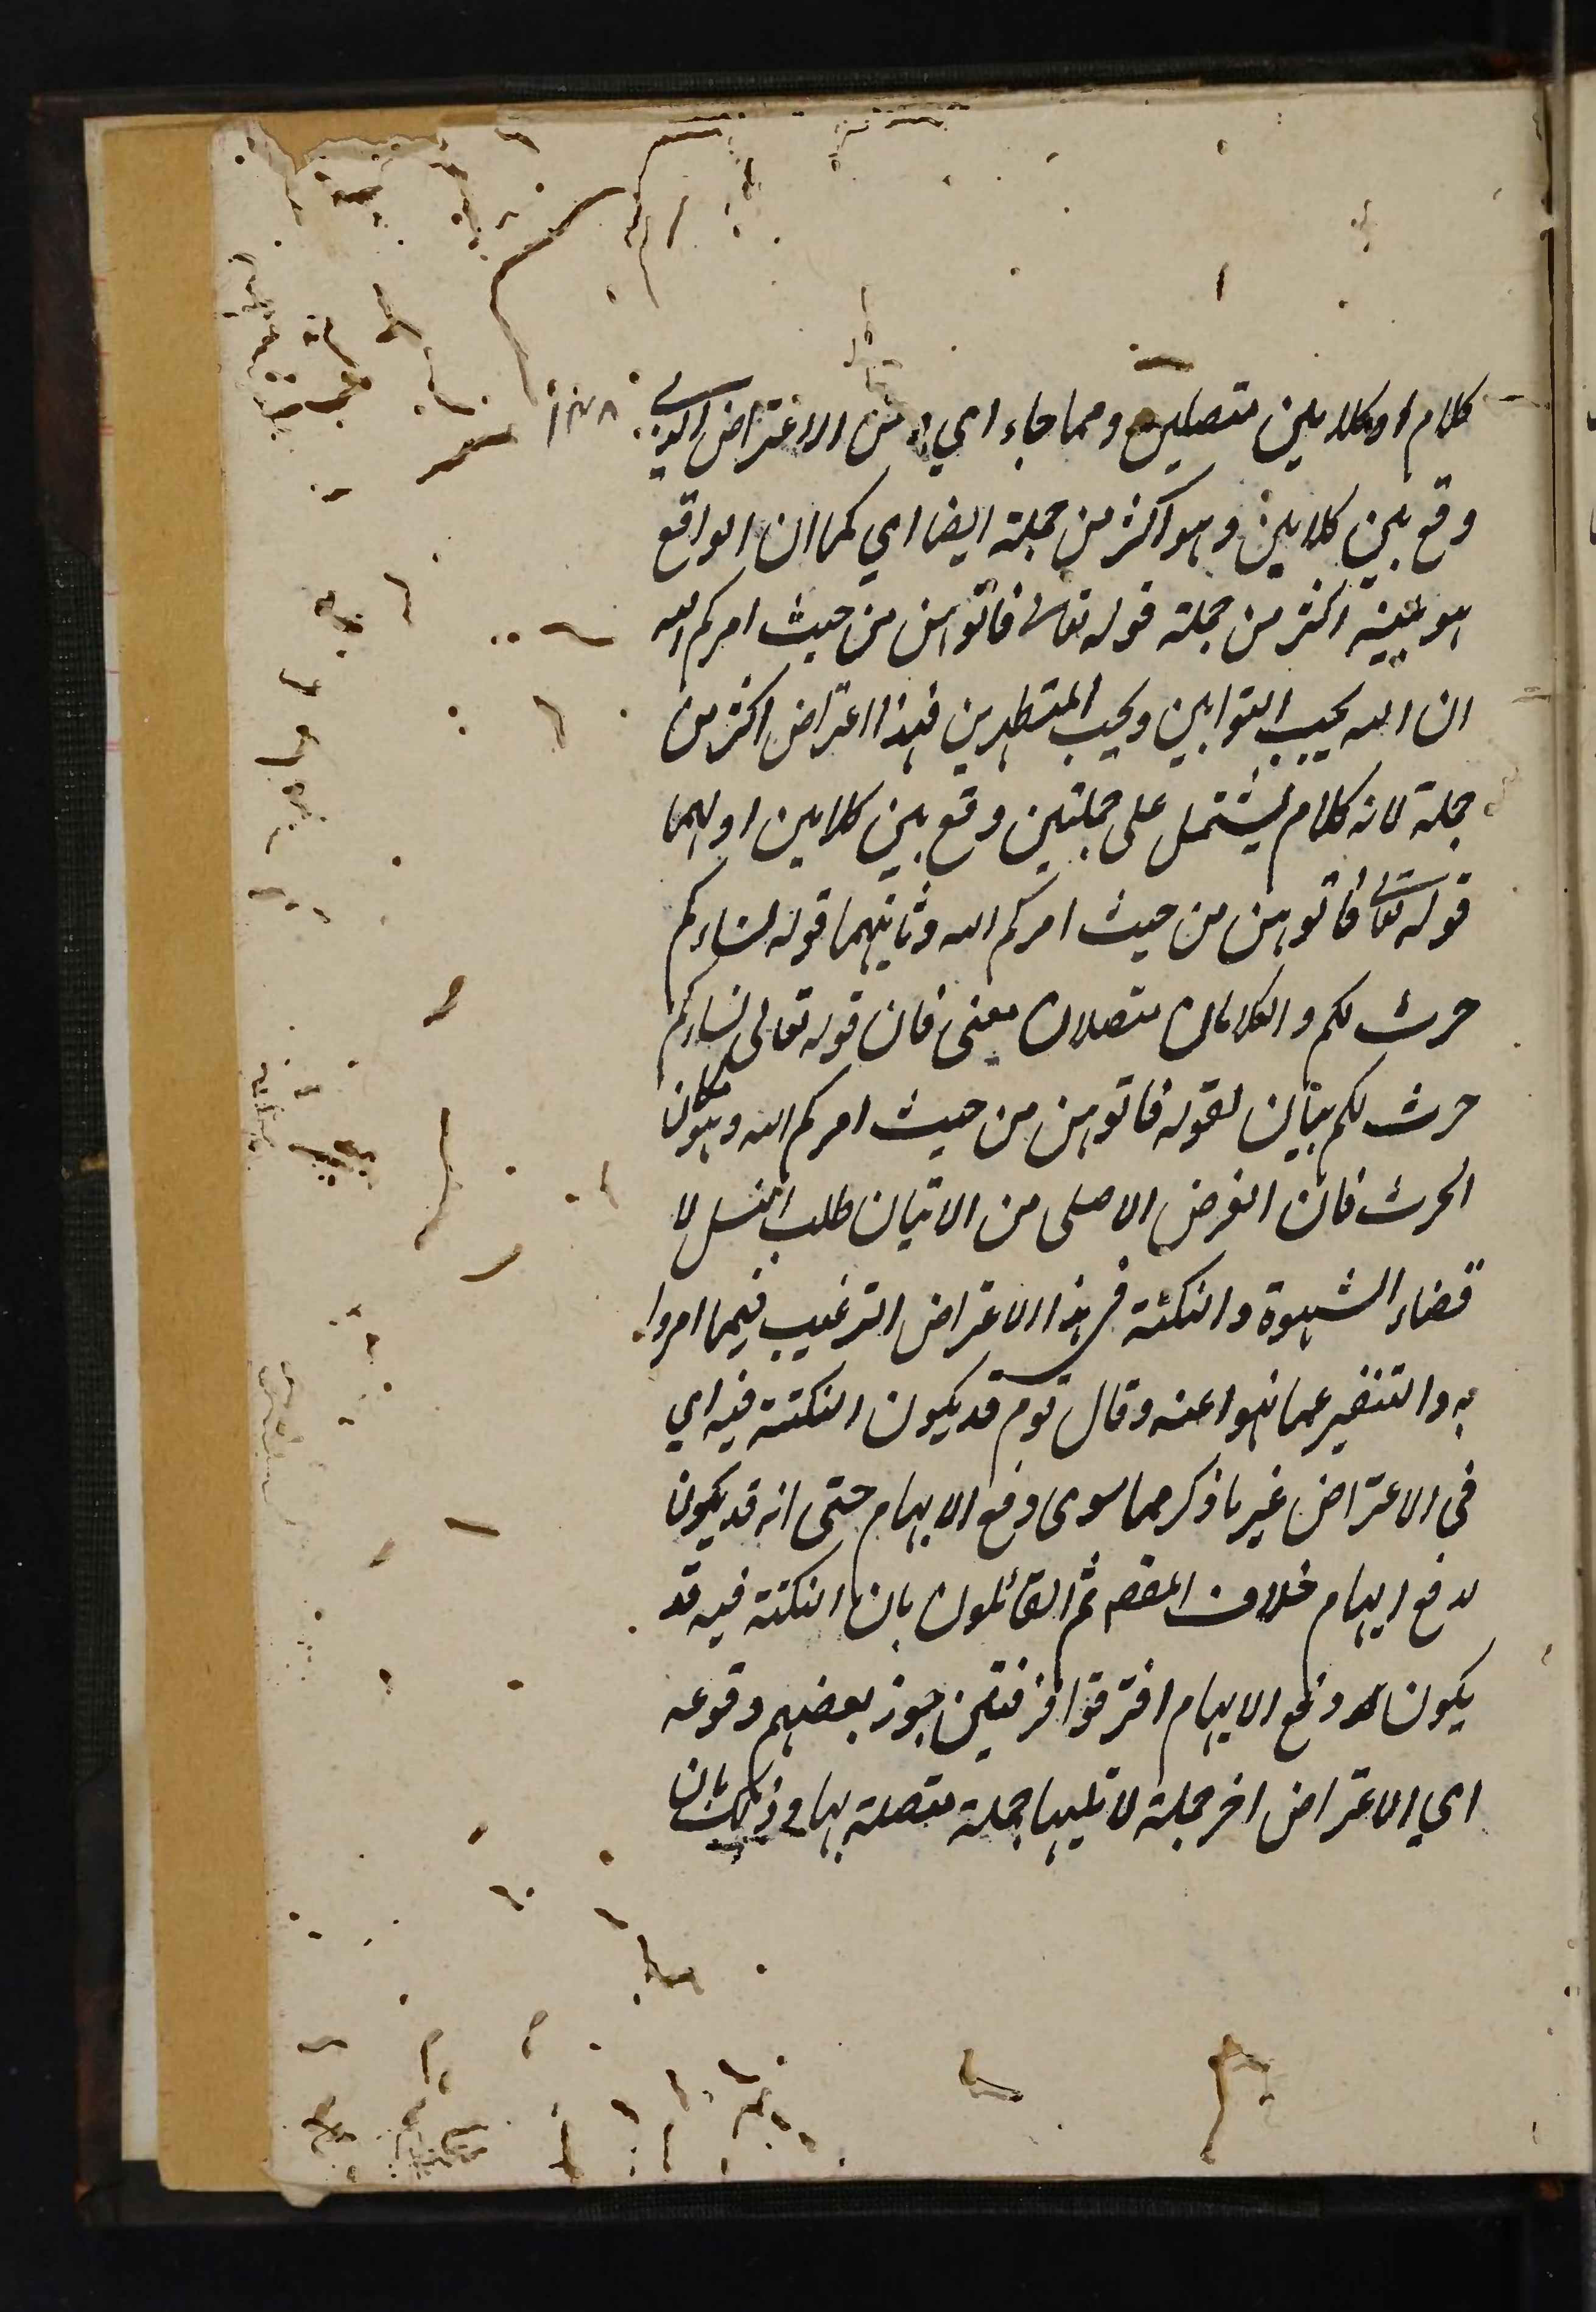 كلام او كلامين متصلين ومما جاء اي من الاعتراض الذي
وقع بين كلامين وهو اكثر من جملة ايضا اي كما ان الواقع
هو بينه اكثر من جملة قوله تعالى فاتوهن من حيث امركم الله
ان الله يحب التوابين ويحب المتطهرين فهذا اعتراض اكثر من
جملة لانه كلام يشتمل على جملتين وقع بين كلامين اولهما
قوله تعالى فاتوهن من حيث امركم الله وثانيهما قوله نساءكم
حرث لكم والكلامان متصلان معنى فان قوله تعالى نساءكم
حرث لكم بيان لقوله فاتوهن من حيث امركم الله وهو مكان
الحرث فان الغرض الاصلى من الاتيان طلب النسل لا
قضاء الشهوة والنكتة فى هذا الاعتراض الترغيب فيما امروا
به والتنفير عما نهوا عنه وقال قوم قد يكون النكتة فيه اي
فى الاعتراض غير ما ذكر مما سوى دفع الايهام حتى انه قد يكون
لدفع ايهام خلاف المقصود ثم القائلون بان النكتة فيه قد
يكون دفع الايهام افترقوا فرقتين جوز بعضهم وقوعه
اي الاعتراض اخر جملة لا تليها جملة متصلة بها وذلك بان